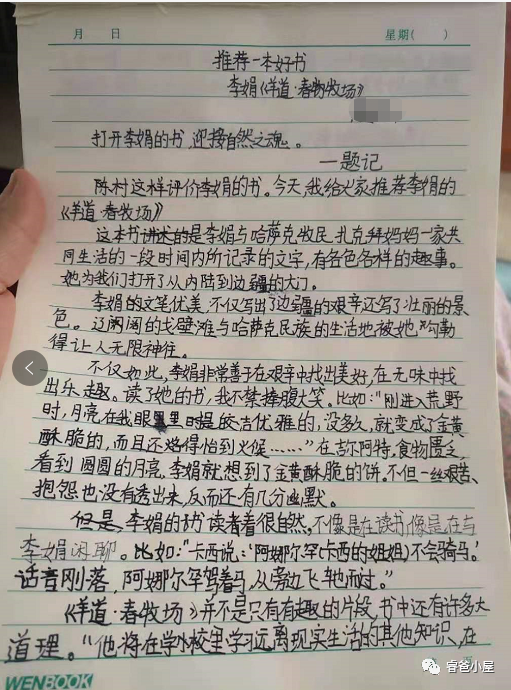 月 日 星期( )
推荐一本好书
李娟《羊道·春牧场》
打开李娟的书,迎接自然之魂。
—题记
陈村这样评价李娟的书。今天,我给大家推荐李娟的
《羊道·春牧场》
这本书讲述的是李娟与哈萨克牧民扎克拜妈妈一家共
同生活的一段时间内所记录的文字,有各色各样的趣事。
她为我们打开了从内陆到边疆的大门。
李娟的文笔优美,不仅写出了边疆的艰辛还写了壮丽的景
色。辽阔阔的戈壁滩与哈萨克民族的生活地被她勾勒
得让人无限神往。
不仅如此,李娟非常善于在艰辛中找出美好,在无味中找
出乐趣。读了她的书,我不禁捧腹大笑。比如:“刚进入荒野
时,月亮在我眼里时是皎洁优雅的,没多久,就变成了金黄
酥脆的,而且还烙得恰到火候……”在吉尔阿特,食物匮乏,
看到圆圆的月亮,李娟就想到了金黄酥脆的饼。不但一丝艰苦、
抱怨也没有透出来,反而还有几分幽默。
但是,李娟的书读者看很自然,不像是在读书像是在与
李娟闲聊。比如:“卡西说:‘阿娜尔罕(卡西的姐姐)不会骑马。’
话音刚落,阿娜尔罕驾着马,从旁边飞驰而过。”
《羊道·春牧场》并不是只有有趣的片段,书中还有许多大
道理。“他将在学校里学习远离现实生活的其他知识,在
WENBOOK
睿爸小屋